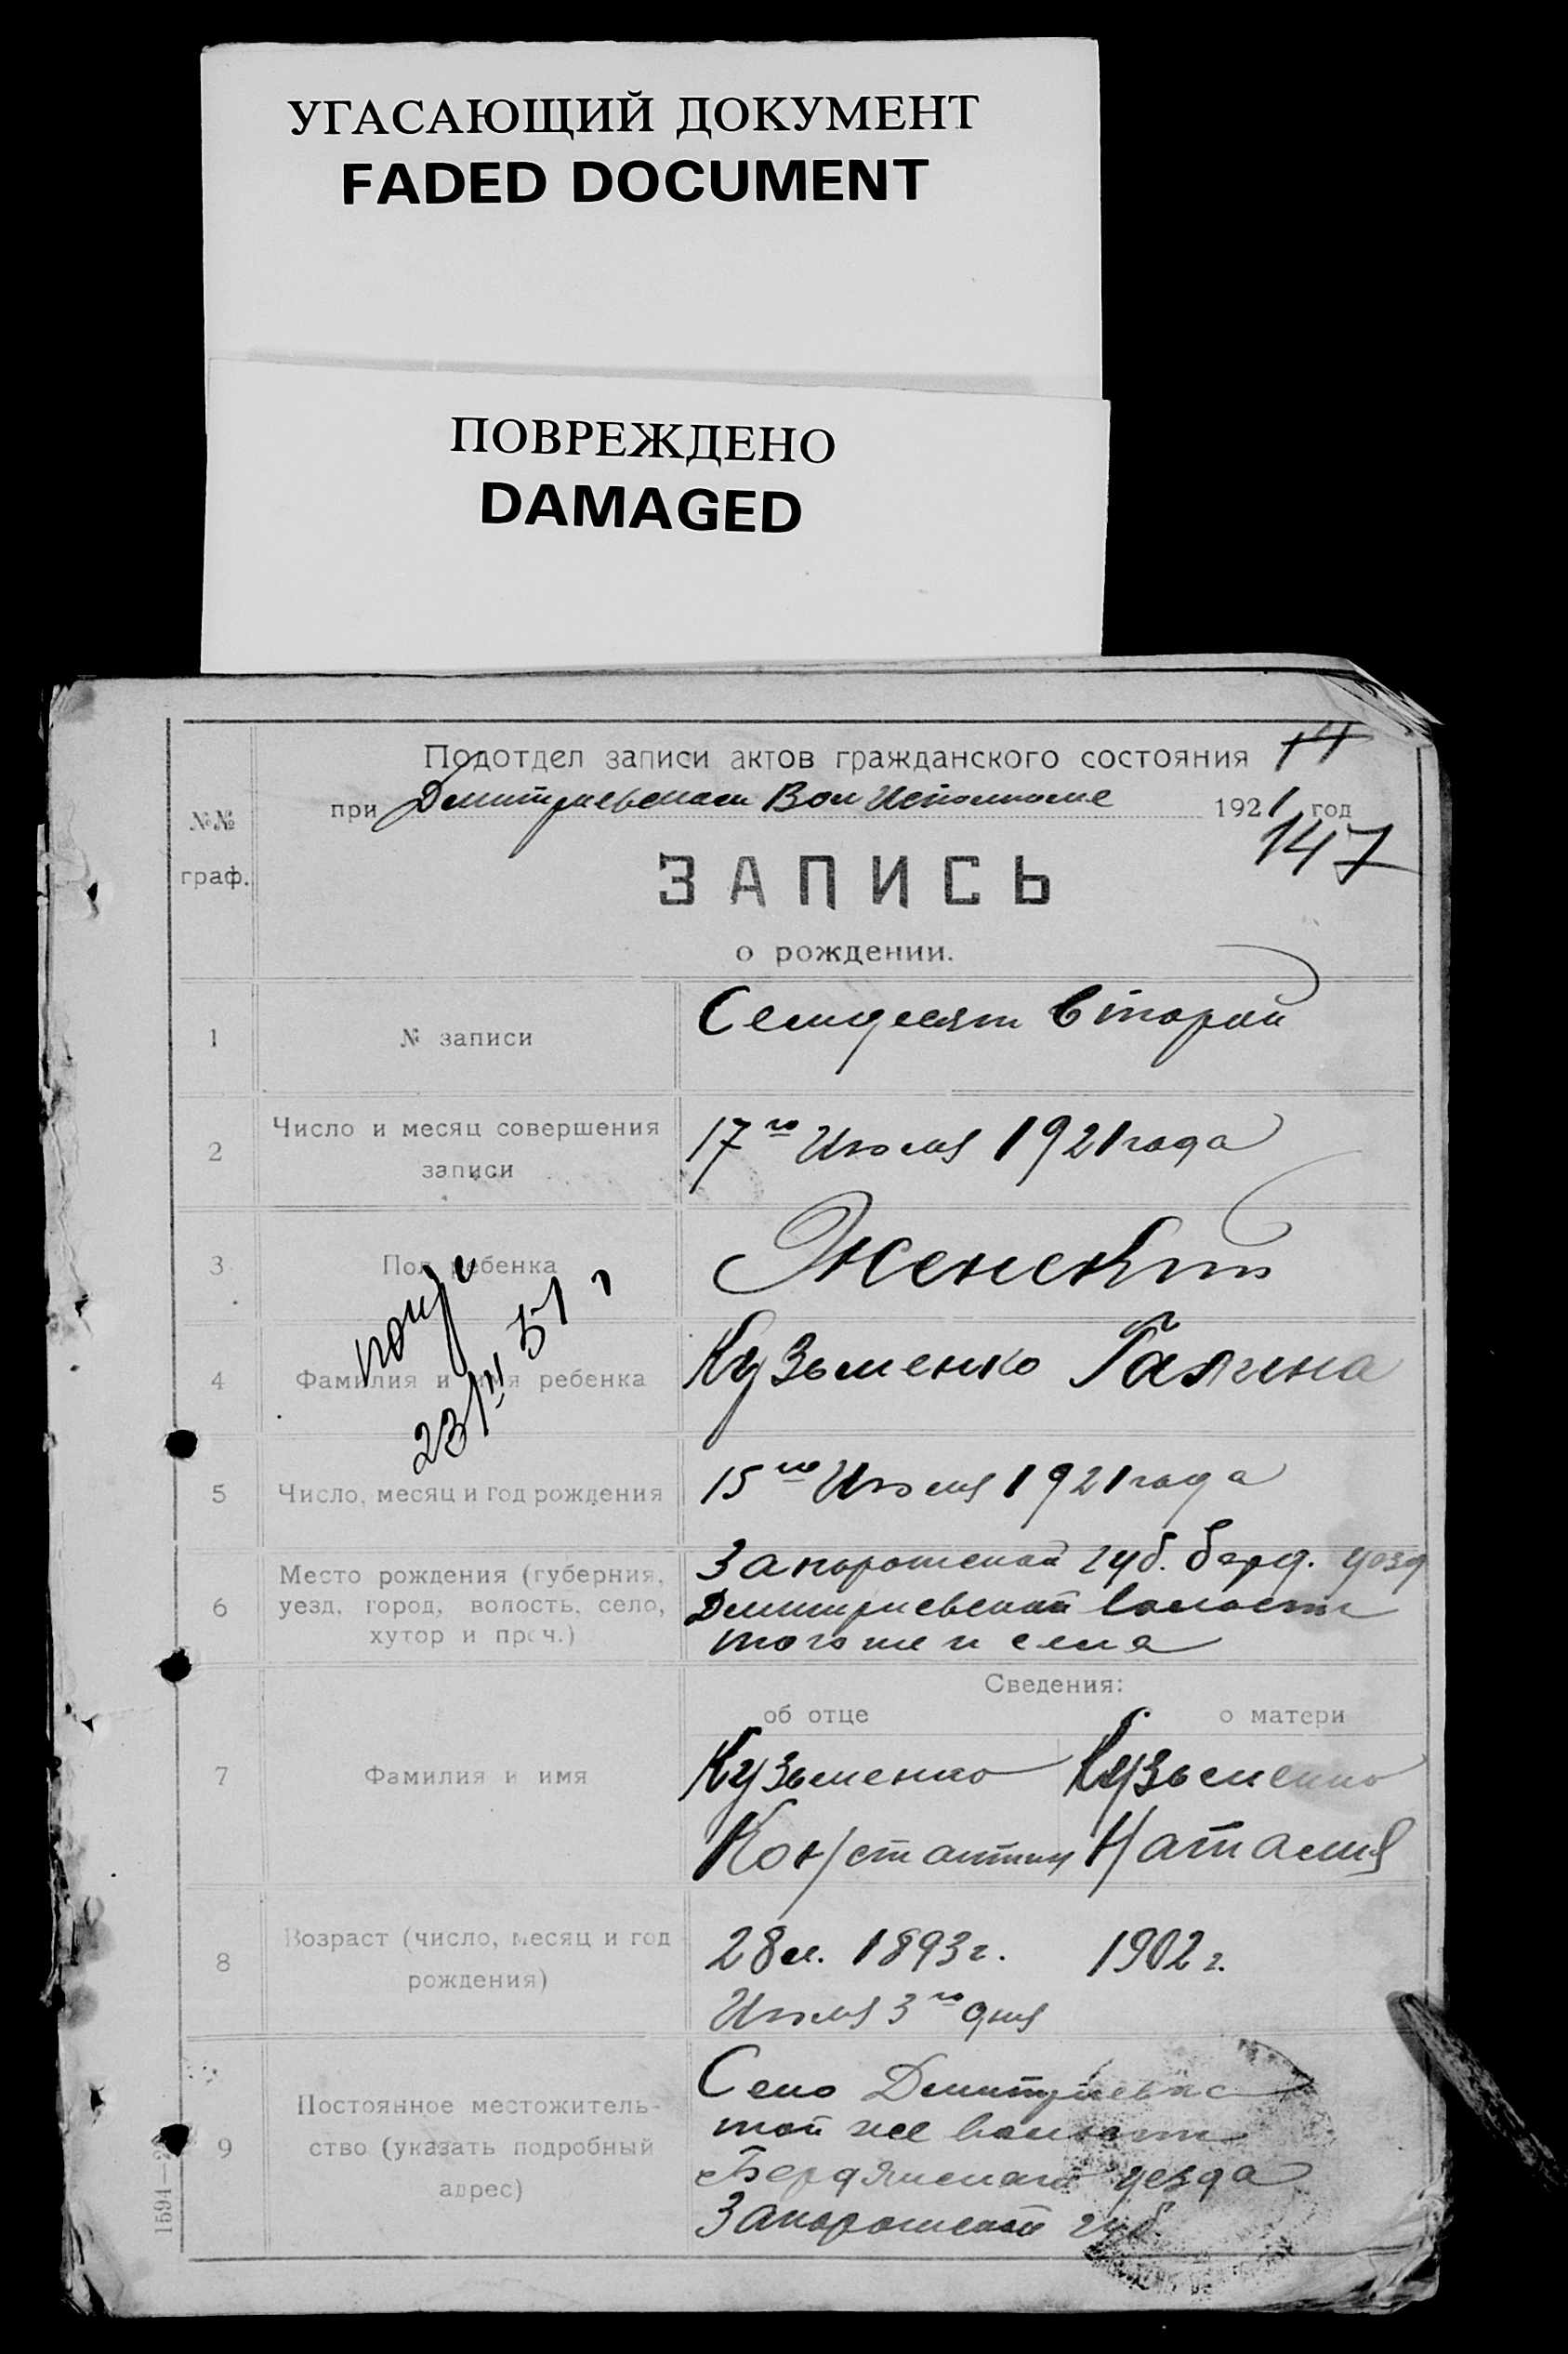 УГАСАЮЩИЙ ДОКУМЕНТ
FADED DOCUMENT
ПОВРЕЖДЕНО
DAMAGED
Подотдел записи актов гражданского состояния 14
при Дмитриевском Вол Исполкоме 1921 год
147
№№
граф.
ЗАПИСЬ
о рождении.
1 № записи Семидесят второй
2 Число и месяц совершения
записи
17го Июля 1921 года
3 Пол ребенка Женский
4 Фамилия и имя ребенка Кузьменко Галина
23/III 51 г
5 Число, месяц и год рождения 15го Июля 1921 года
6 Место рождения (губерния,
уезд, город, волость, село,
хутор и проч.)
Запорожской губ. Берд. уезд
Дмитриевской волости
того же и села
Сведения:
об отце о матери
7 Фамилия и имя
Кузьменко Кузьменко
Константин Наталия
8 Возраст (число, месяц и год
рождения)
28 л. 1893 г. 1902 г.
Июля 3го дня
9 Постоянное местожитель-
ство (указать подробный
адрес)
Село Дмитриевка
той же волости
Бердянского уезда
Запорожской губ.